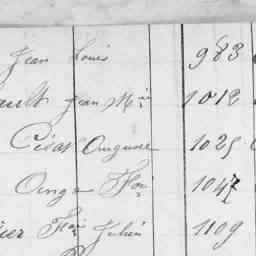 Jean Louis 983
ault Jean Mie 1018
César Auguste 1025
Ange Foi 1047
ier Foi Julien 1109